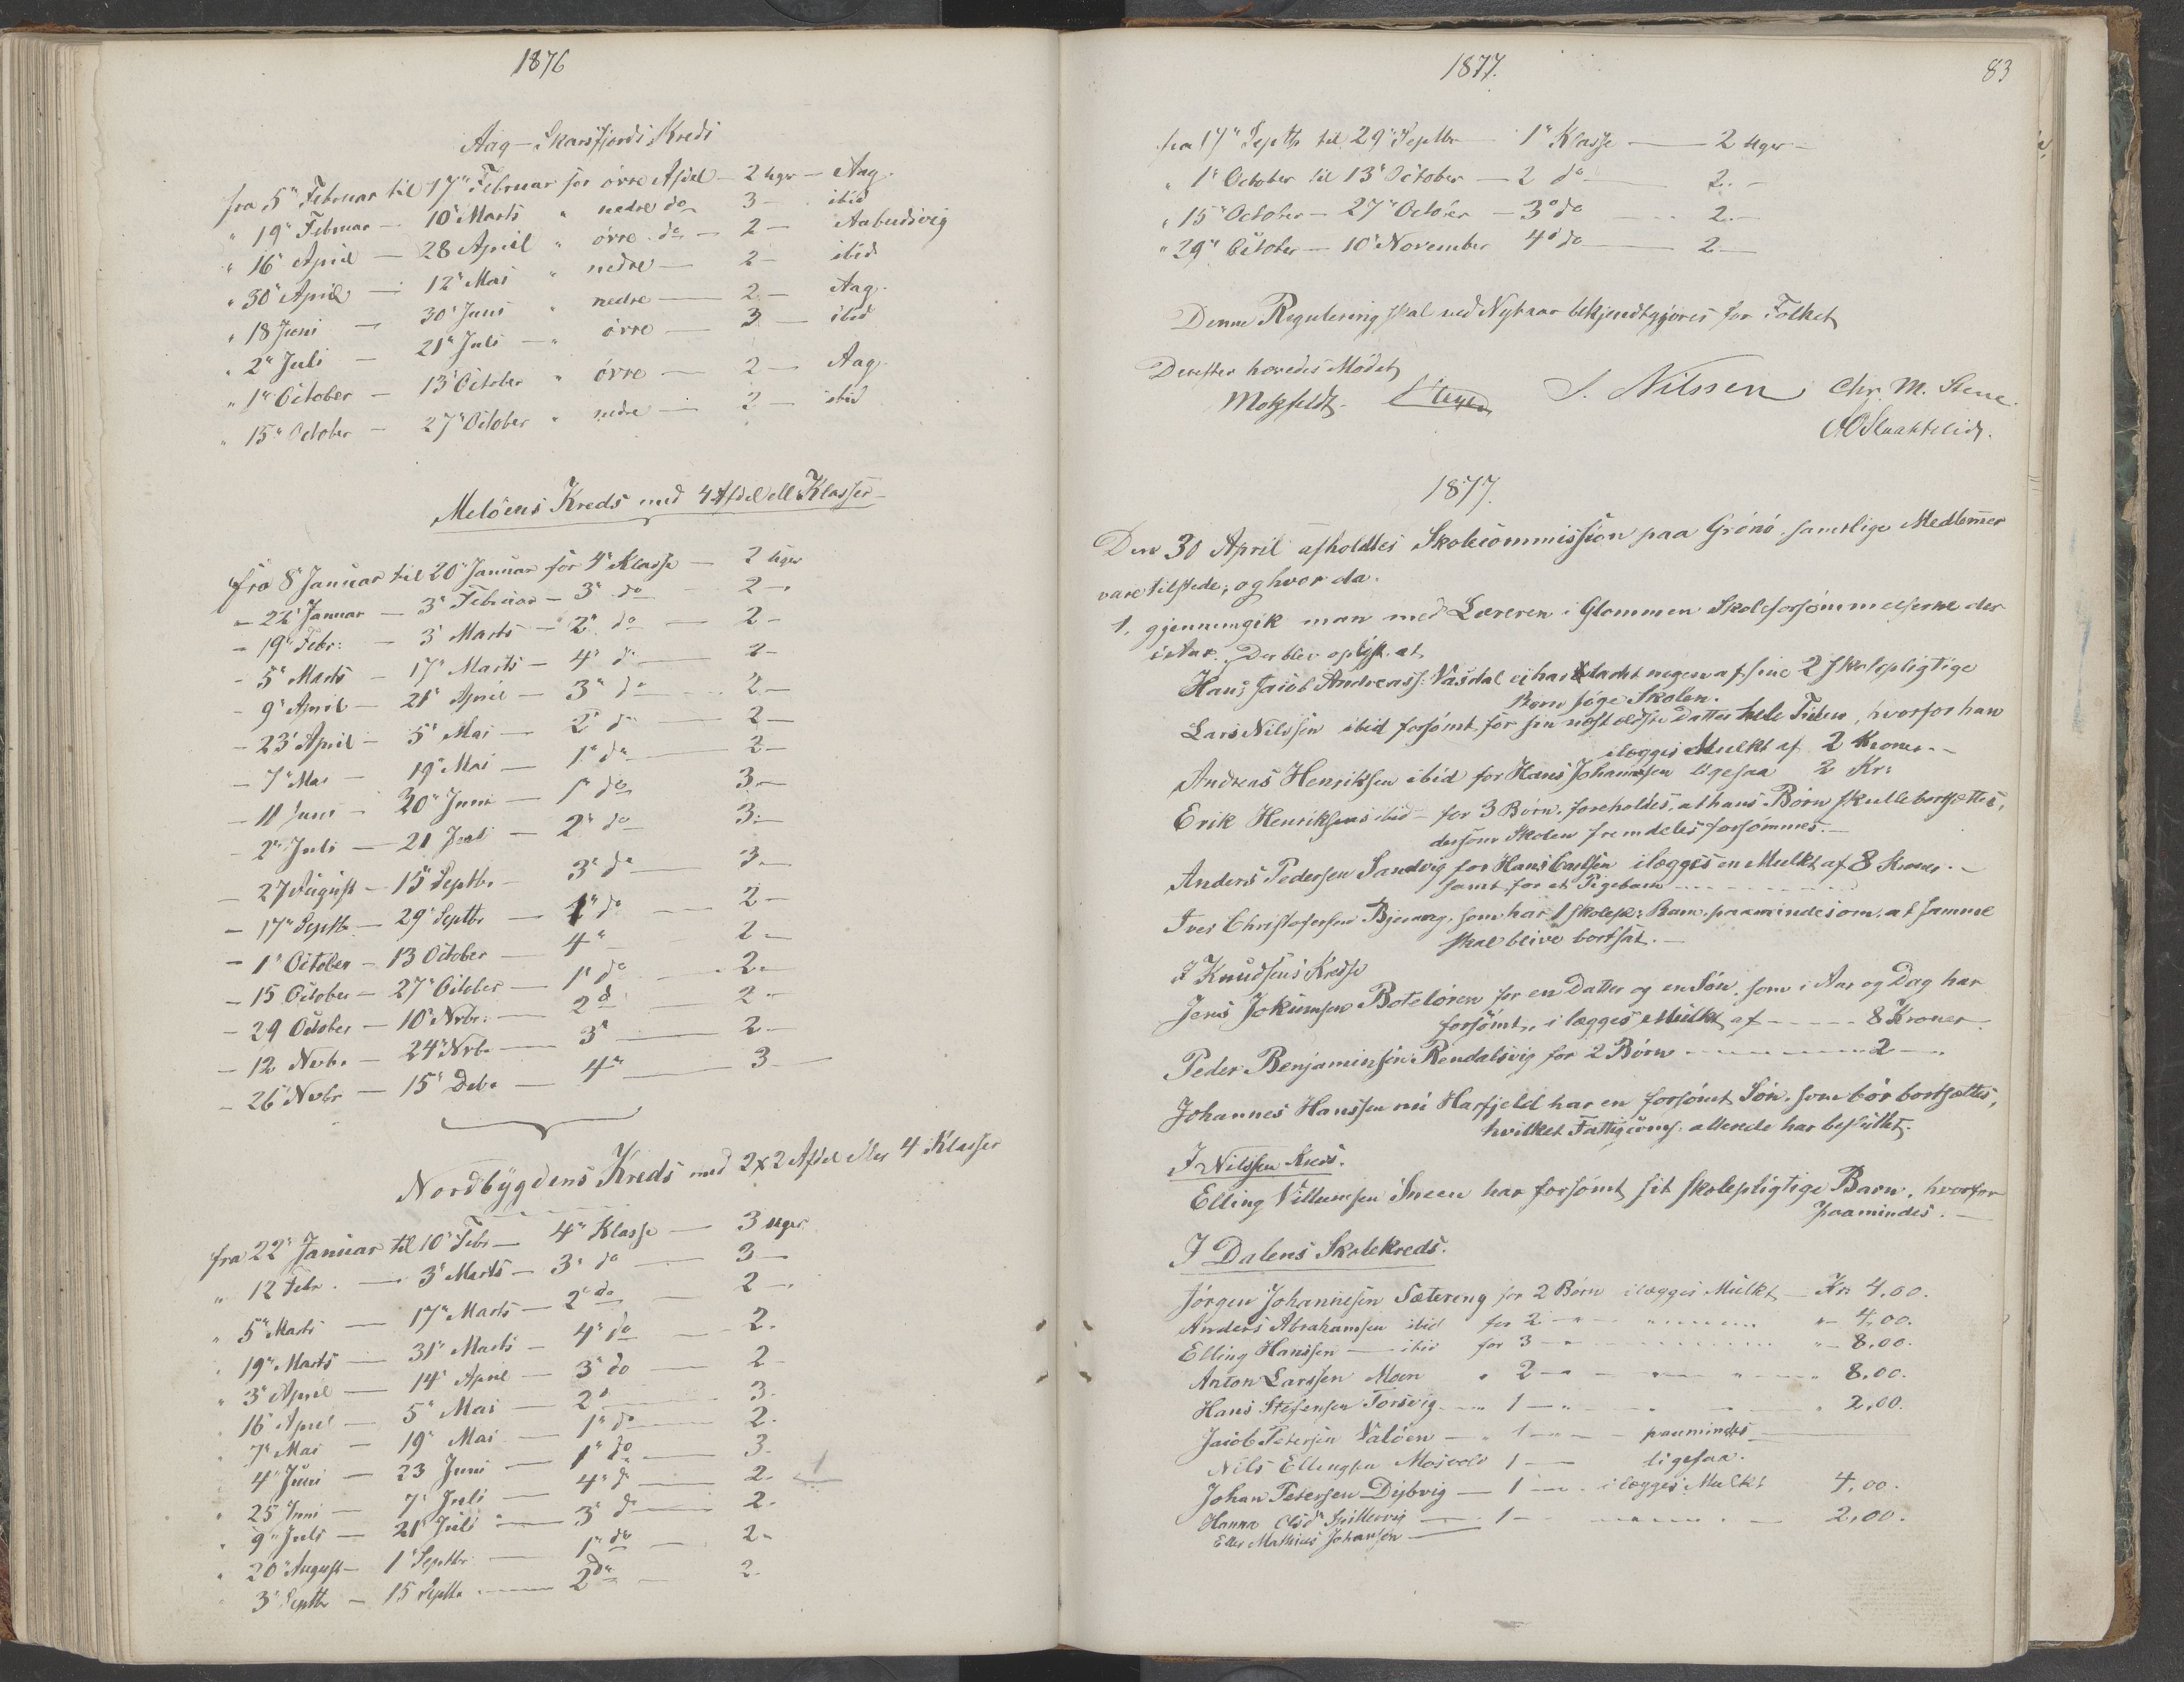 1876
Aag-Skarsfjords Kreds
fra 5" Februar til 17" Februar for øvre Afdel - 2 Uger - Aag.
" 19" Februar - 10" Marts " nedre do - 3 - ibid
" 16" April - 28 April " øvre do - 2 - Aabudsvig
" 30" April - 12" Mai " nedre - 2 - ibid
" 18 Juni - 30" Juni " nedre - 2 - Aag.
" 2" Juli - 21" Juli - " øvre - 3 - ibid
" 1" October - 13" October " øvre - 2 - Aag.
" 15" October - 27" October " nedre - 2 - ibid
Melöens Kreds med 4 Afdel ell Klasser
fra 8" Januar til 20" Januar for 4" Klasse - 2 Uger
- 22" Januar - 3" Februar - 3" do - 2 -
- 19" Febr: - 3" Marts - 2" do - 2 -
- 5" Marts - 17" Marts - 4" do - 2 -
- 9" April - 21" April - 3" do - 2 -
- 23" April - 5" Mai - 2" do - 2 -
- 7" Mai - 19" Mai - 1" do - 2 -
- 11 Juni - 30" Juni - 1" do - 3 -
- 2" Juli - 21 Juli - 2" do - 3 -
- 27 August - 15" Septbr - 3" do - 3 -
- 17" Septb - 29" Septbr - 1" do - 2 -
- 1" October - 13 October - 4" - 2 -
- 15 October - 27" October - 1" do - 2 -
- 29 October - 10" Nvbr: - 2 d - 2 -
- 12 Nvbr - 24" Nvb. - 3" - 2 -
- 26" Nvbr - 15" Debr - 4" - 3 -
Nordbygdens Kreds med 2x2 Afdel eller 4 Klasser
fra 22" Januar til 10" Febr - 4" Klasse - 3 Uger
" 12 Febr. - 3" Marts - 3" do - 3 -
" 5" Marts - 17" Marts - 2" do - 2 -
" 19" Marts - 31" Marts - 4" do - 2.
" 3" April - 14" April - 3" do - 2 -
" 16" April - 5" Mai - 2" - 3.
" 7" Mai - 19" Mai - 1" do - 2.
" 4" Juni - 23 Juni - 1" do - 3.
" 25 Juni - 7" Juli - 4" do - 2.
" 9" Juli - 21" Juli - 3" do - 2.
" 20" August - 1" Septbr - 1" do - 2 -
" 3" Septbr - 15 Septbr - 2 do - 2.
1877.
83
fra 17" Septb til 29" Septbr - 1" Klasse - 2 Uger -
" 1" October til 13" October - 2 do - 2. -
" 15" October - 27" October - 3" do - 2. -
" 29" October - 10" November 4" do - 2 -
Denne Regulering skal ved Nytaar bekjendtgjøres for Folket
Derefter hævedes Mødet
Motzfeldt. S. Nilssen Chr. M. Stene.
1877.
Den 30 April afholdtes Skolecommission paa Grønø, samtlige Medlemer
vare tilstede; og hvor da.
1. gjennemgik man med Læreren i Glommen Skoleforsømmelserne der
i Aar. Der blev oplyst at
Hans Jacob Andreass: Vasdal ei har ladet nogen af sine 2 skolepligtige
Børn søge Skolen.
Lars Nilssen ibid forsømt for sin næst ældste Datter hele Tiden, hvorfor han
ilægges Mulkt af 2 Kroner. -
Andreas Henriksen ibid for Hans Johannesen ligesaa 2 Kr:
Erik Henriksens ibid - for 3 Børn, foreholdes, at hans Børn skulle bortsættes,
dersom Skolen fremdeles forsømmes. -
Anders Pedersen Sandvig for Hans Carlsen ilægges en Mulkt af 8 Kroner. -
samt for et Pigebarn
Iver Christofersen Bjerang, som har 1 skolepl: Barn, paamindes om, at samme
skal blive bortsat. -
I Knudsens Kredse
Jens Jokumsen Boteløren for en Datter og en Søn, som i Aar og Dag har
forsømt, ilægges Mulkt af - 8 Kroner.
Peder Benjaminsen Rendalsvig for 2 Børn - 2 -.
Johannes Hanssen nu Harfjeld har en forsømt Søn, som bør bortsættes,
hvilket Fattigcoms. allerede har besluttet.
I Nilssens Kreds.
Elling Villumsen Sneen har forsømt sit skolepligtige Barn, hvorfor
paamindes. -
I Dalens Skolekreds.
Jørgen Johannesen Sætereng for 2 Børn ilægges Mulkt - Kr 4,00.
Anders Abrahamsen ibid for 2 - " - 4,00.
Elling Hanssen - ibid for 3 - " - 8,00.
Anton Larssen Moen " 2 - " - 8,00.
Hans Stefensen Torsvig - 1 - " - 2,00.
Jacob Petersen Valöen - " 1 - " - paamindes
Nils Ellingsen Mosvold 1 - ligesaa.
Johan Petersen Dybvig - 1 - ilægges Mulkt 4,00.
Hanna Olsdr Spillervig - 1 - 2,00.
Eller Mathias Johansen -